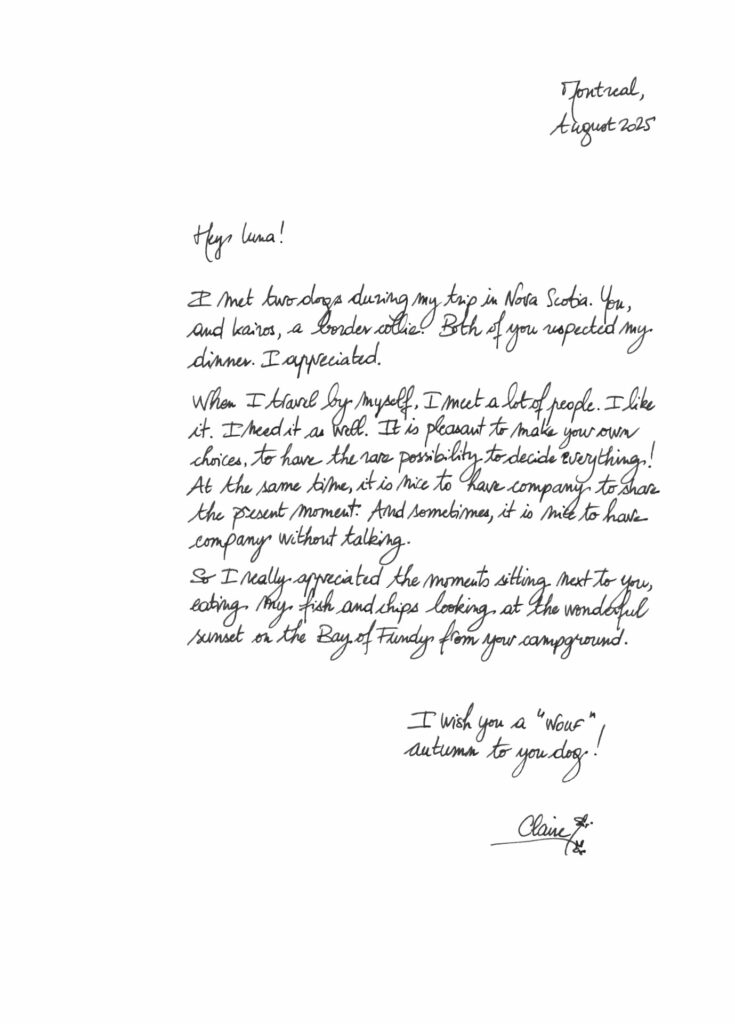 Montreal,
August 2025
Hey Luna!
I met two dogs during my trip in Nova Scotia. You,
and Kairos, a border collie. Both of you respected my
dinner. I appreciated.
When I travel by myself, I meet a lot of people. I like
it. I need it as well. It is pleasant to make your own
choices, to have the rare possibility to decide everything!
At the same time, it is nice to have company to share
the present moment. And sometimes, it is nice to have
company without talking.
So I really appreciated the moments sitting next to you,
eating my fish and chips looking at the wonderful
sunset on the Bay of Fundy from your campground.
I wish you a "Wouf"
autumn to you dog!
Claire